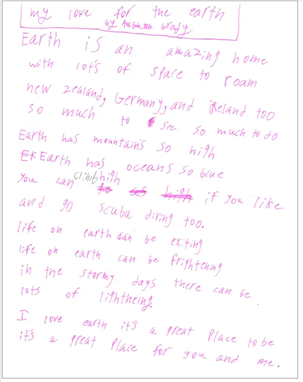 my love for the earth
by Brody
Earth is an amazing home
with lot's of space to roam
new zealand, Germany, and ireland too
so much to see so much to do
Earth has mountains so high
Earth has oceans so blue
you can climb high if you like
and go scuba diving too.
life on earth can be exiting
life on earth can be frightening
in the stormy days there can be
lots of lightneing.
I love earth it's a great place to be
it's a great place for you and me.